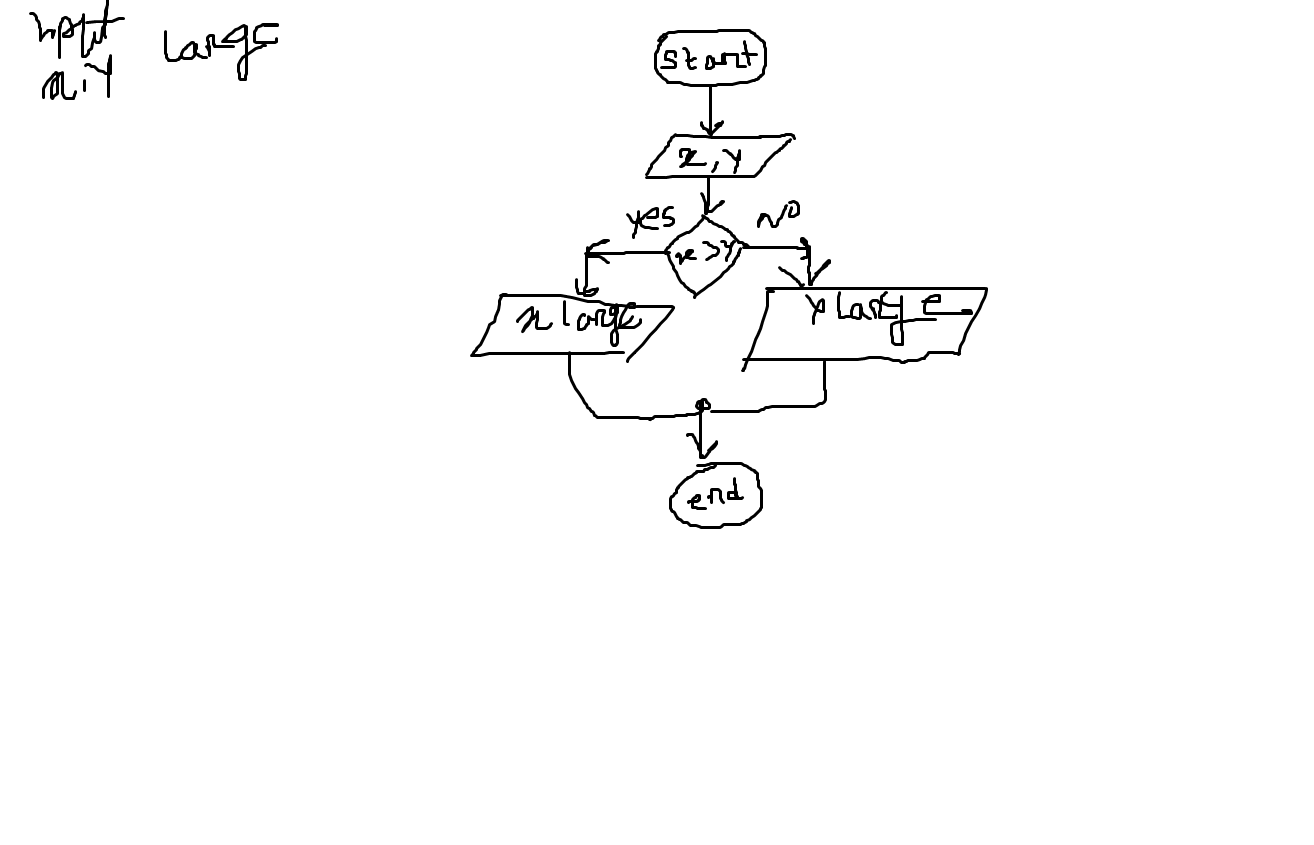 Input Large
x, y
Start
x, y
yes No
x > y
x large y Large
end